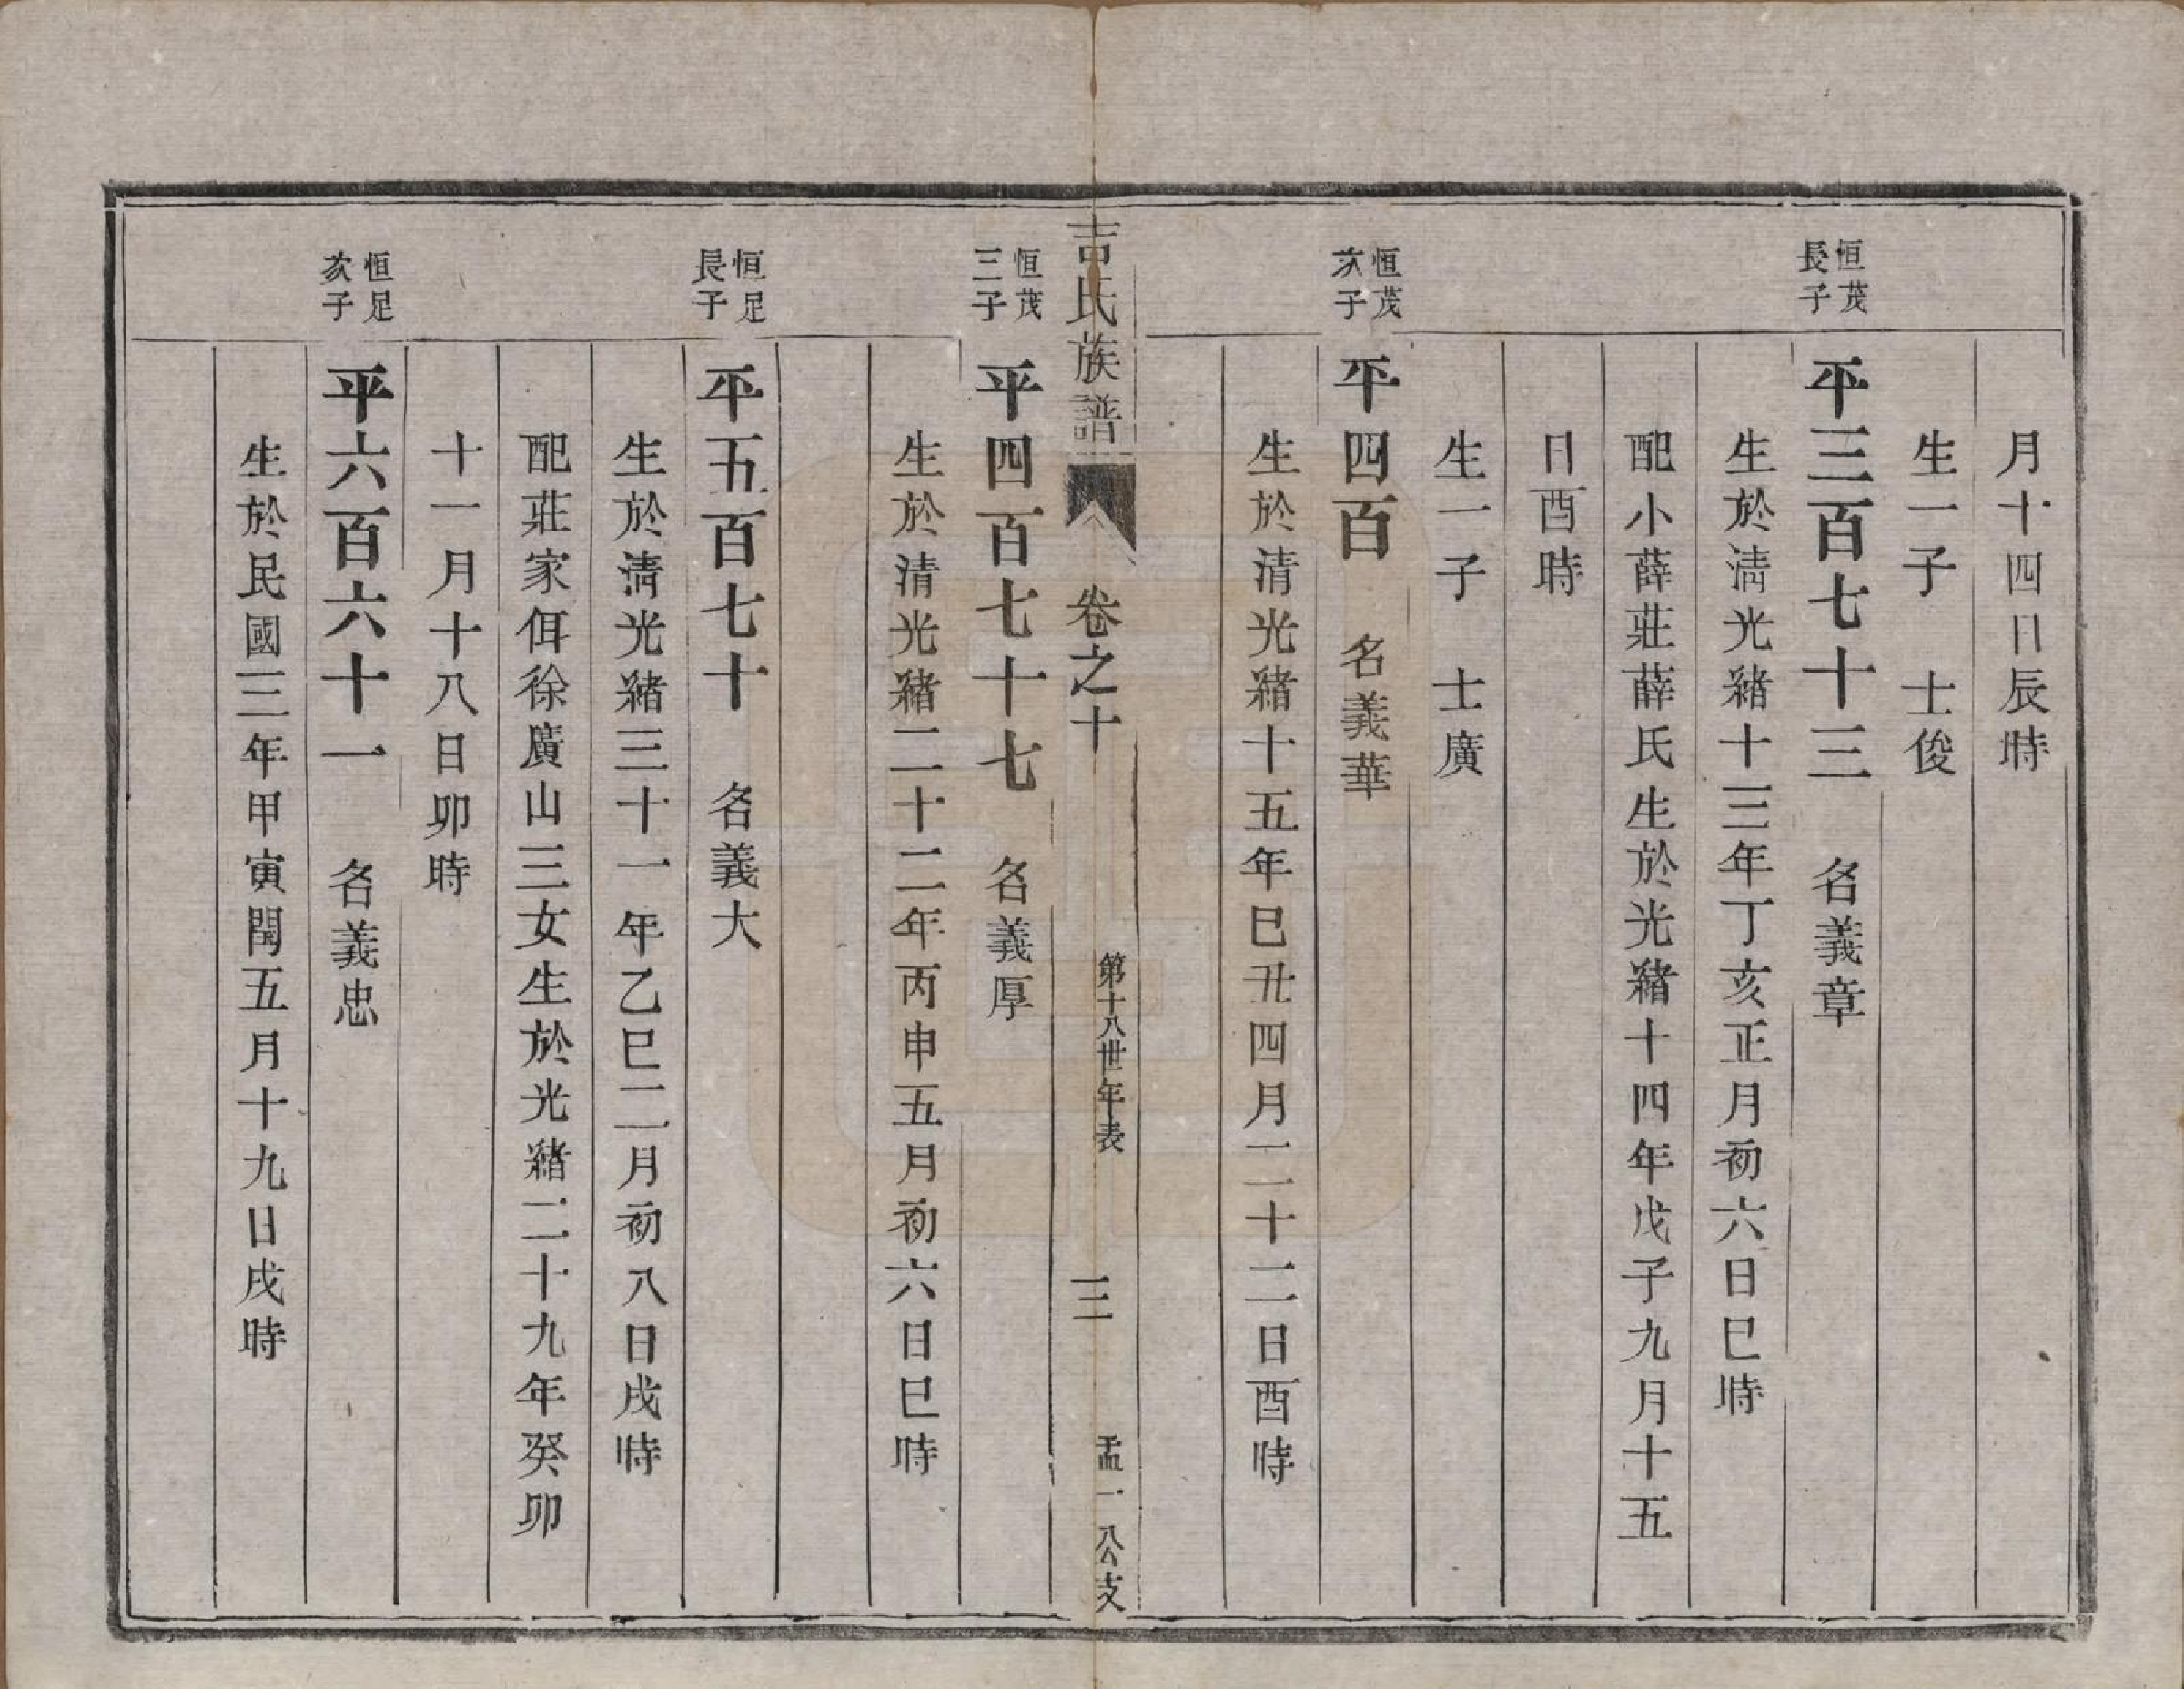 月十四日辰時
生一子　士俊
恒茂
長子
平三百七十三　名義章
生於清光緒十三年丁亥正月初六日巳時
配小薛莊薛氏生於光緒十四年戊子九月十五
日酉時
生一子　士廣
恒茂
次子
平四百　名義華
生於清光緒十五年巳丑四月二十二日酉時
吉氏族譜　卷之十　第十八世年表　三　孟一公支
恒茂
三子
平四百七十七　名義厚
生於清光緒二十二年丙申五月初六日巳時
恒足
長子
平五百七十　名義大
生於清光緒三十一年乙巳二月初八日戌時
配莊家佴徐廣山三女生於光緒二十九年癸卯
十一月十八日卯時
恒足
次子
平六百六十一　名義忠
生於民國三年甲寅閏五月十九日戌時